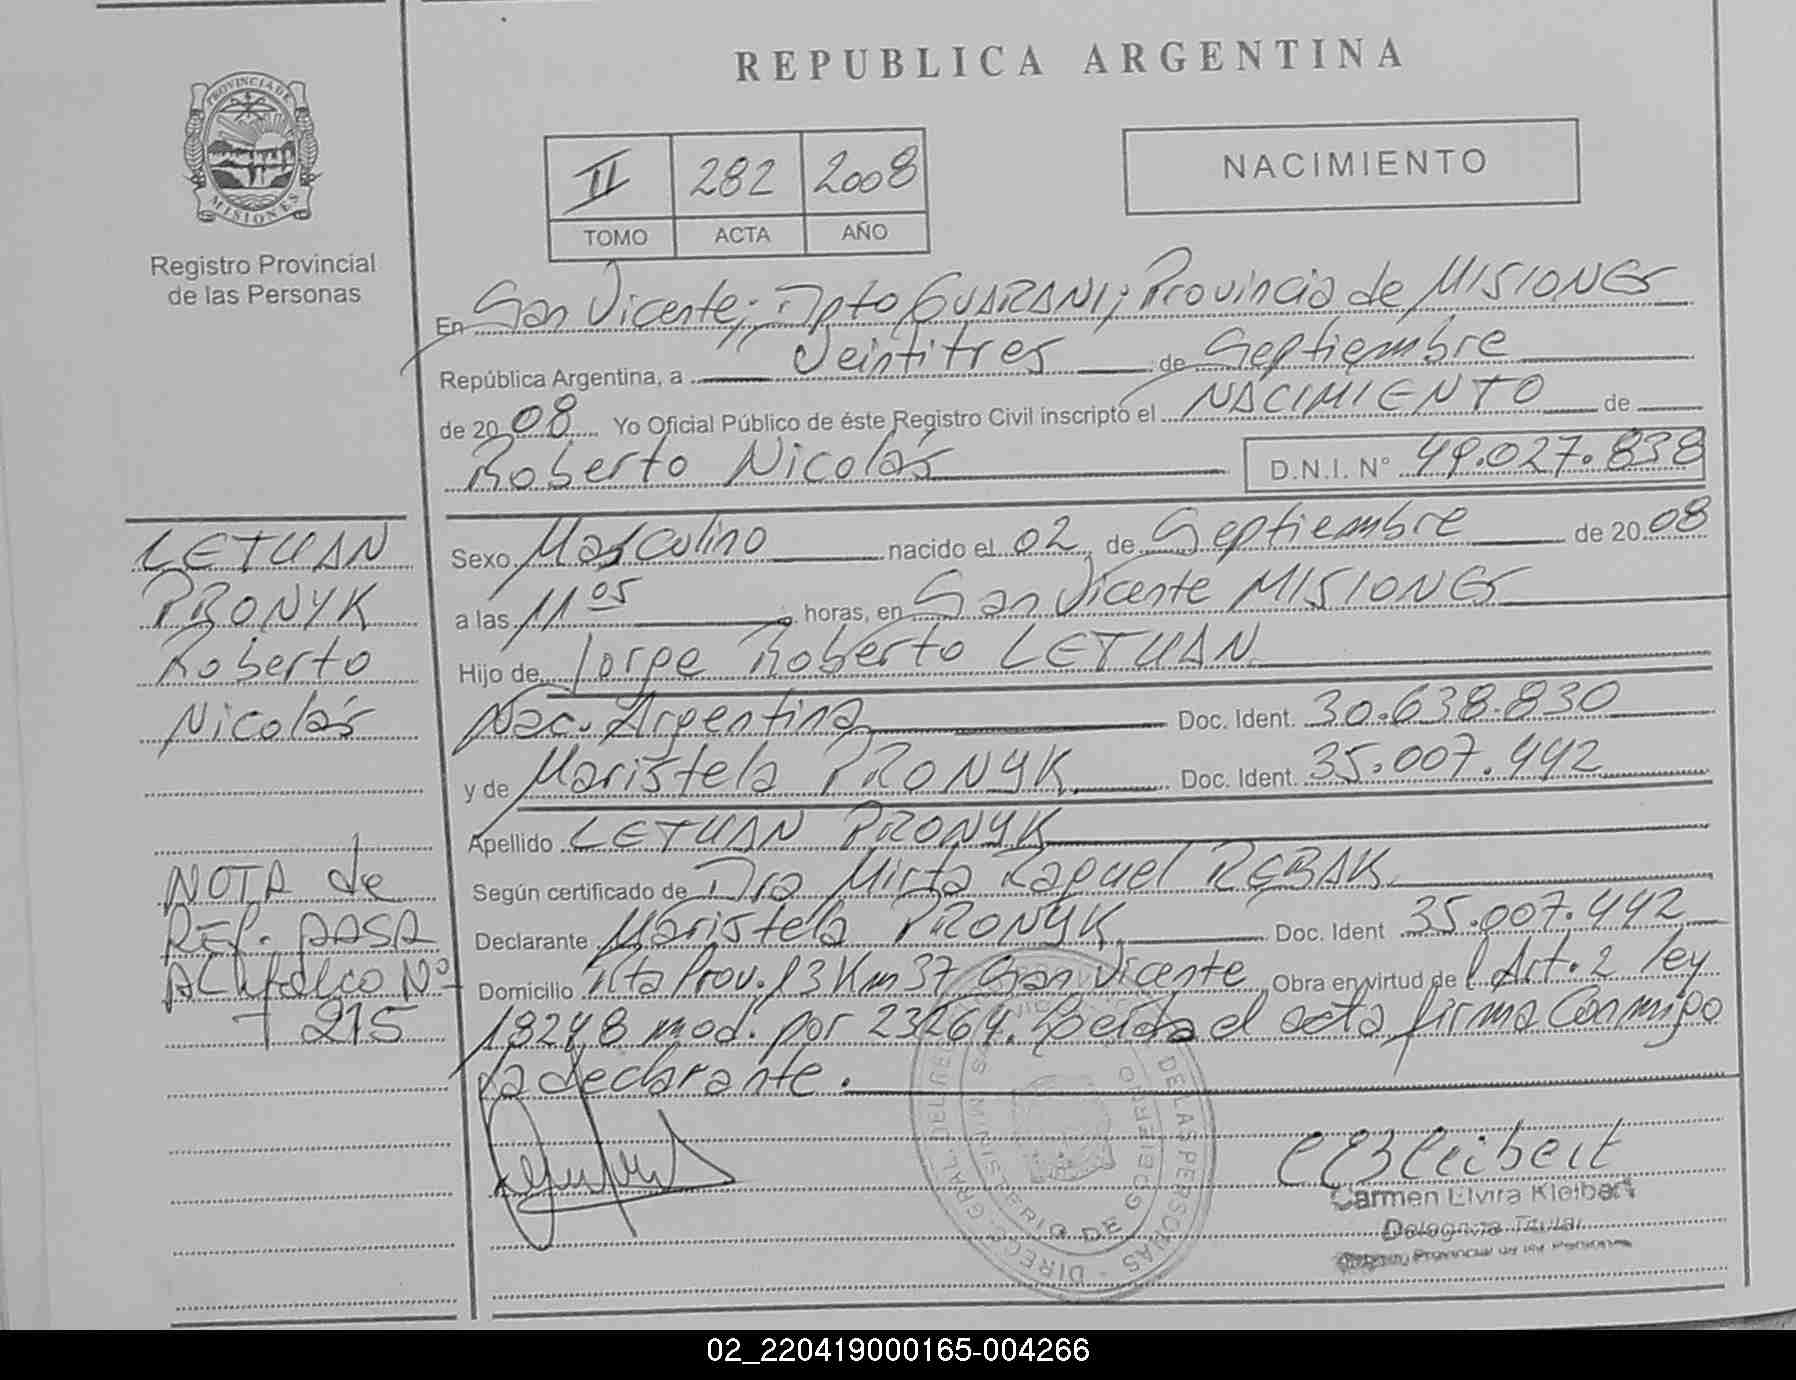 REPUBLICA ARGENTINA
PROVINCIA DE
MISIONES
Registro Provincial
de las Personas
II 282 2008
TOMO ACTA AÑO
NACIMIENTO
En San Vicente; Dpto GUARANI; Provincia de MISIONES
República Argentina, a Veintitres de Septiembre
de 2008 Yo Oficial Público de éste Registro Civil inscripto el NACIMIENTO de
Roberto Nicolás D.N.I. N° 49.027.838
LETUAN
PRONYK
Roberto
Nicolás
Sexo Masculino nacido el 02 de Septiembre de 2008
a las 11 05 horas, en San Vicente MISIONES
Hijo de Jorge Roberto LETUAN
Nac. Argentina Doc. Ident. 30.638.830
y de Maristela PRONYK Doc. Ident. 35.007.442
Apellido LETUAN PRONYK
Según certificado de Dra Mirta Raquel REBAK
Declarante Maristela PRONYK Doc. Ident 35.007.442
Domicilio Rta Prov. 13 Km 37 San Vicente Obra en virtud de l Art. 2 ley
18248 mod. por 23264. Leída el acta firma Conmigo
la declarante.
NOTA de
REF. PASA
Al N°
215
DE LAS PERSONAS - DIREC. GRAL. DEL RE
MINISTERIO DE GOBIERNO
Carmen Elvira Kleibert
Delegada Titular
Registro Provincial de las Personas
02_220419000165-004266